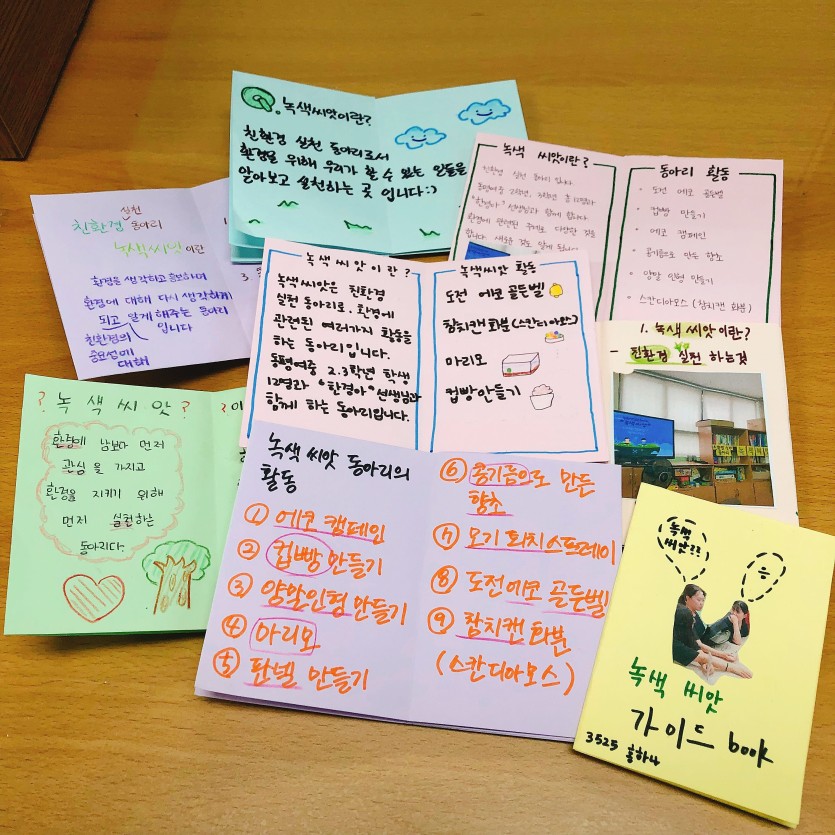 Q. 녹색씨앗이란?
친환경 실천 동아리로서
환경을 위해 우리가 할 수 있는 일들을
알아보고 실천하는 곳 입니다:)
녹색 씨앗이란?
친환경 실천 동아리 입니다.
동아리 활동
도전 에코 골든벨
컵빵 만들기
에코 캠페인
콩기름으로 만든 향초
양말 인형 만들기
스칸디아모스 (참치캔 화분)
실천
친환경 동아리
녹색씨앗이란
환경을 생각하고 홍보하며
환경에 대해 다시 생각하게
되고 알게 해주는 동아리
입니다
친환경의
중요성에
대해
녹색씨앗이란?
녹색씨앗은 친환경
실천 동아리로, 환경에
관련된 여러가지 활동을
하는 동아리입니다.
동평여중 2.3학년 학생
12명과 "한경아" 선생님과
함께 하는 동아리입니다.
녹색씨앗 활동
도전 에코 골든벨
참치캔 화분(스칸디아모스)
마리모
컵빵만들기
1. 녹색씨앗이란?
- 친환경 실천 하는것
? 녹색씨앗 ?
환경에 남보다 먼저
관심을 가지고
환경을 지키기 위해
먼저 실천하는
동아리다.
녹색 씨앗 동아리의
활동
① 에코 캠페인
② 컵빵 만들기
③ 양말인형 만들기
④ 마리모
⑤ 판넬 만들기
⑥ 콩기름으로 만든
향초
⑦ 모기 퇴치 스프레이
⑧ 도전 에코 골든벨
⑨ 참치캔 화분
(스칸디아모스)
녹색
씨앗??
응
녹색 씨앗
가이드 book
3525